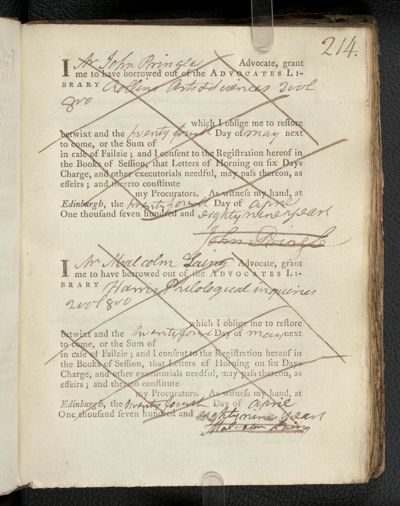 214.
I Mr John Pringle Advocate, grant
me to have borrowed out of the ADVOCATES LI-
BRARY Rollins Arts & Sciences 3 vol
8vo
which I oblige me to restore
betwixt and the twenty fourth Day of may next
to come, or the Sum of
in case of Failzie; and I consent to the Registration hereof in
the Books of Session, that Letters of Horning on six Days
Charge, and other executorials needful, may pass thereon, as
effeirs; and thereto constitute
my Procurators. As witness my hand, at
Edinburgh, the twenty fourth Day of april
One thousand seven hundred and eighty nine years
John Pringle
I Mr Malcolm Laing Advocate, grant
me to have borrowed out of the ADVOCATES LI-
BRARY Harris Philological inquiries
2 vol 8vo
which I oblige me to restore
betwixt and the twenty fourth Day of may next
to come, or the Sum of
in case of Failzie; and I consent to the Registration hereof in
the Books of Session, that Letters of Horning on six Days
Charge, and other executorials needful, may pass thereon, as
effeirs; and thereto constitute
my Procurators. As witness my hand, at
Edinburgh, the twenty fourth Day of april
One thousand seven hundred and eighty nine years
Malcolm Laing